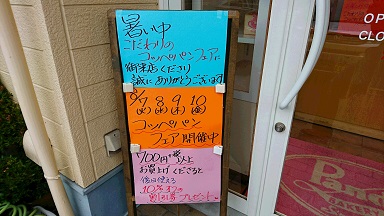 暑い中
こだわりの
コッペパンフェアに
御来店くださり
誠にありがとうございます
9/7 8 9 10
(火)(水)(木)(金)
コッペパン
フェア開催中
700円+税以上
お買上げくださると
次回使える
10%オフの
割引券プレゼント
OP
CLO